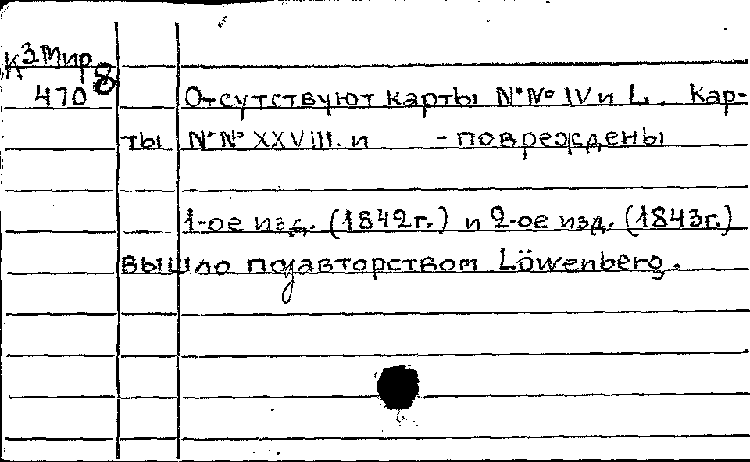 К3Мир 8
470
Отсутствуют карты №№ IV и L. Кар-
ты №№ XXVIII. и - повреждены
1-ое изд. (1842г.) и 2-ое изд. (1843г.)
вышло под авторством Löwenberg.